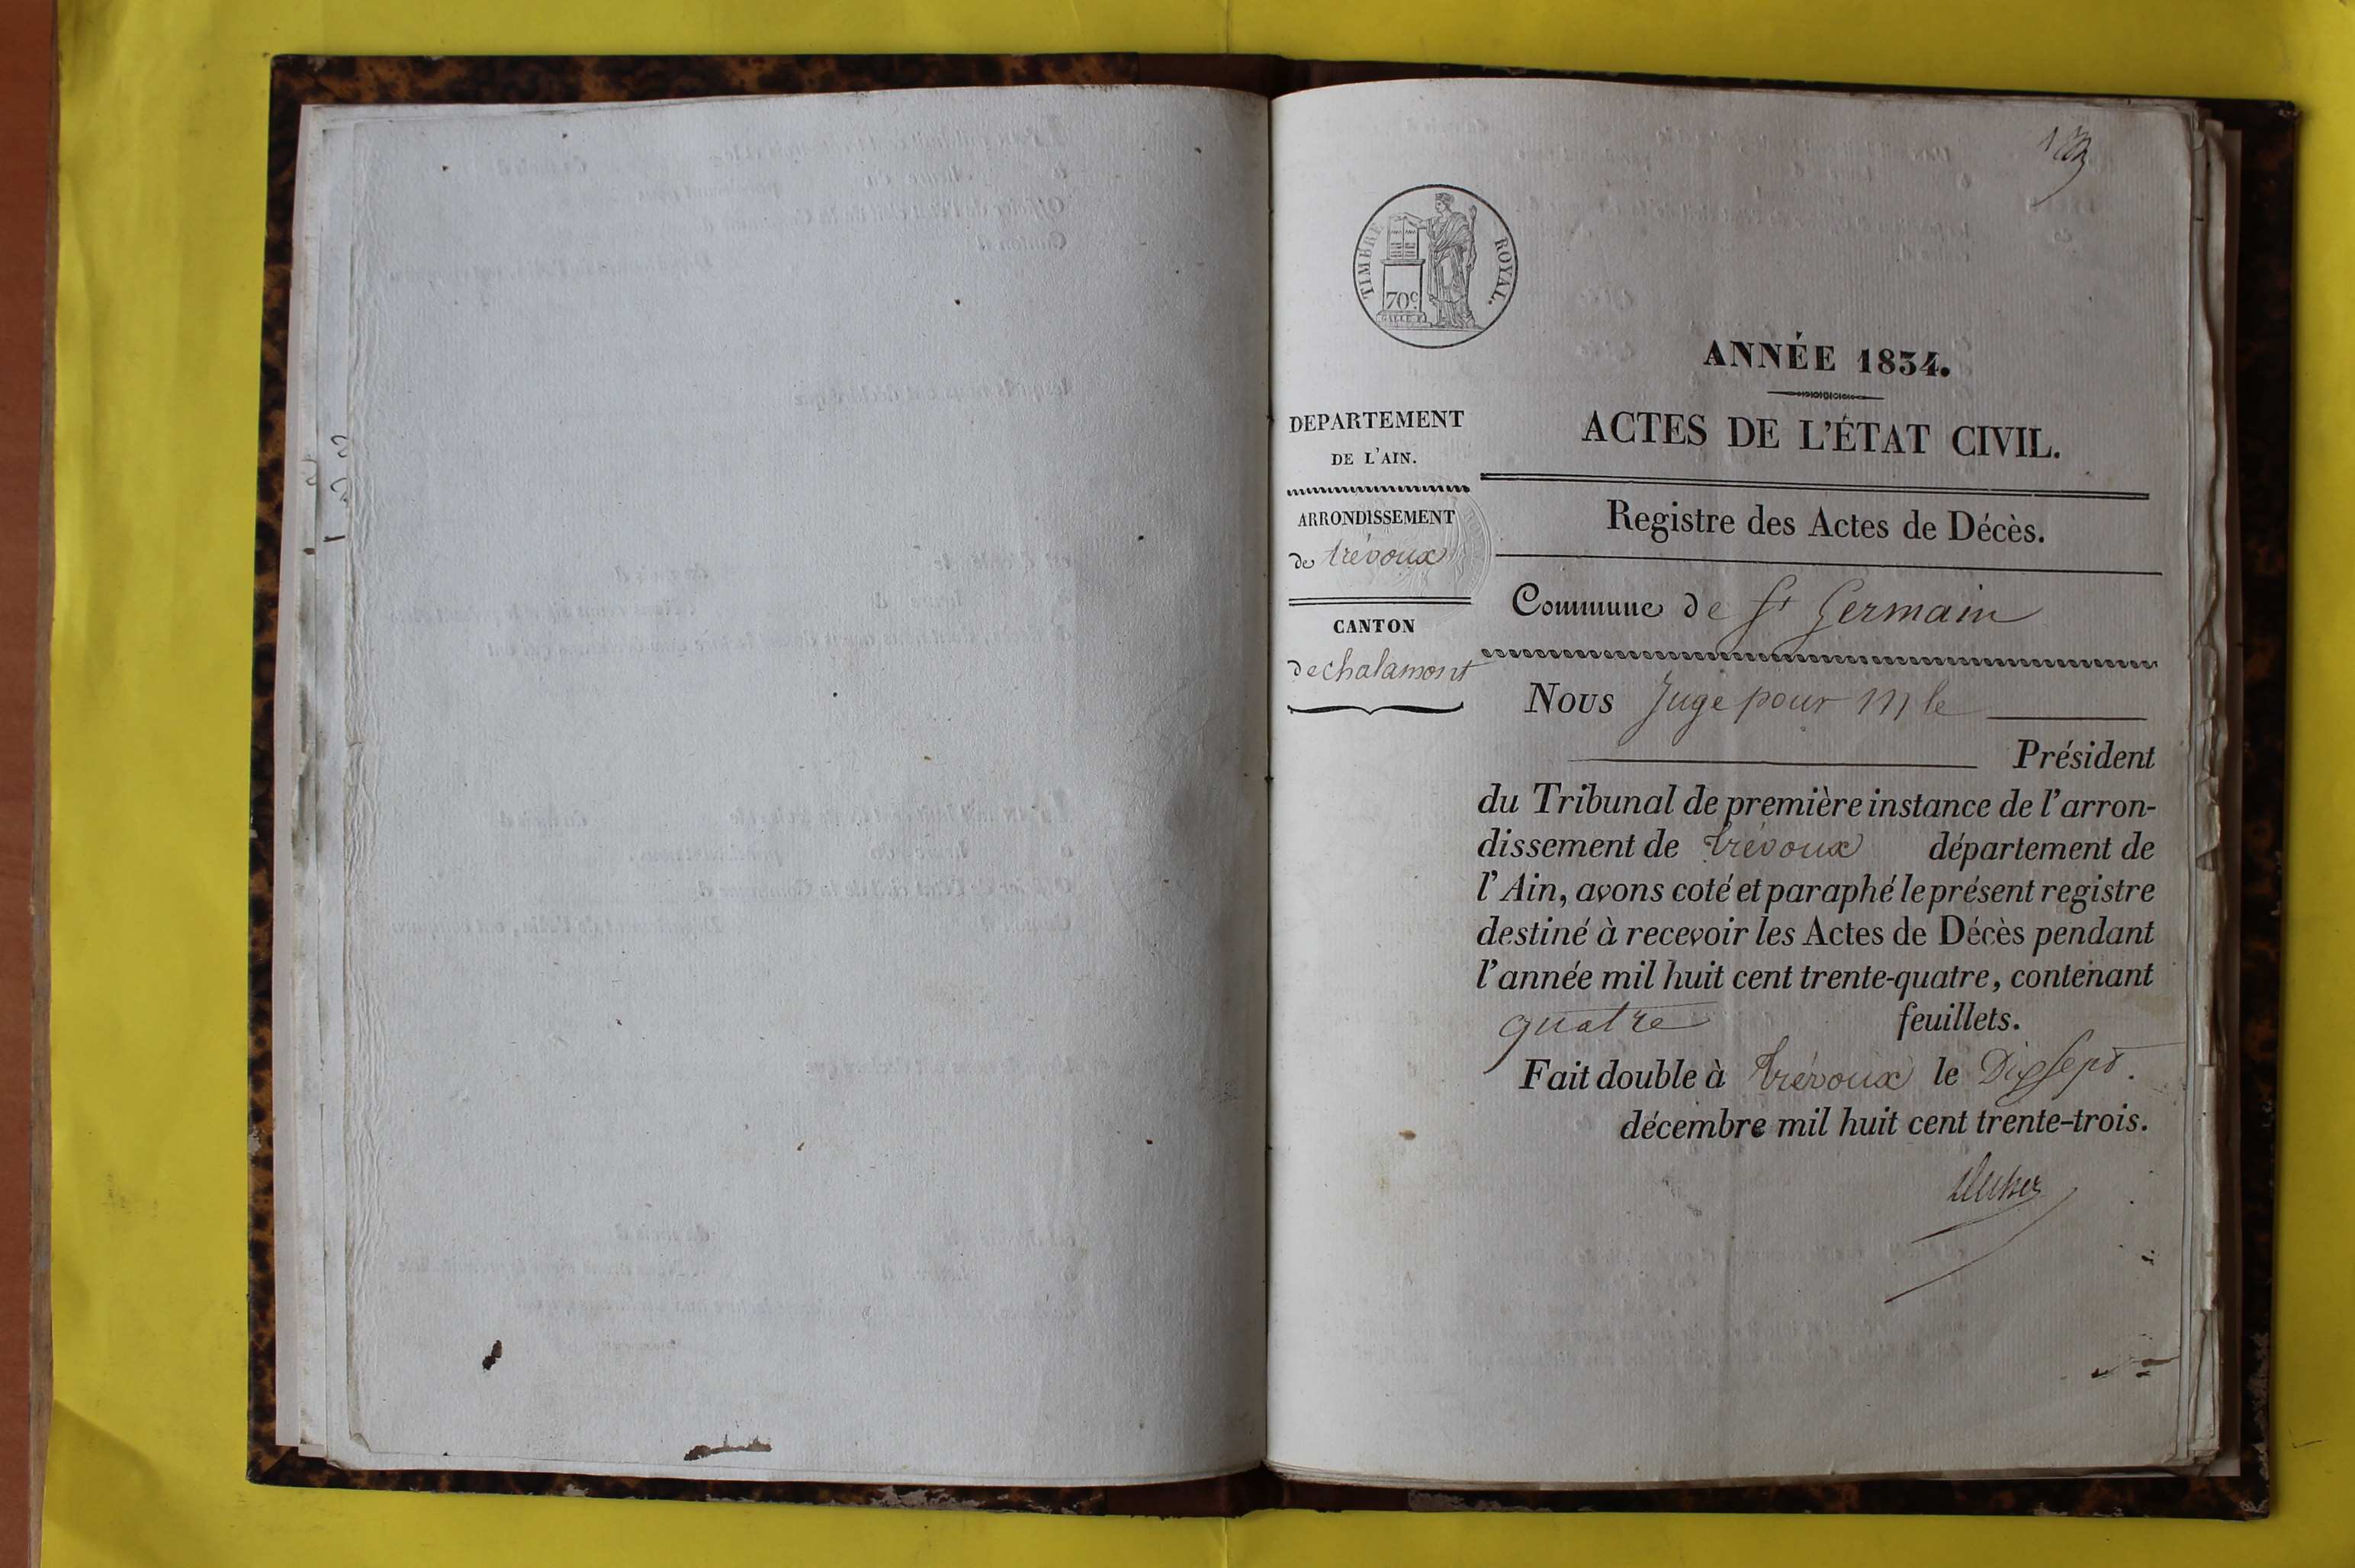 TIMBRE ROYAL.
70c.
ANNÉE 1834.
ACTES DE L'ÉTAT CIVIL.
DEPARTEMENT
DE L'AIN.
ARRONDISSEMENT
de trévoux
CANTON
de chalamont
Registre des Actes de Décès.
Commune de St Germain
Nous Juge pour M le
Président
du Tribunal de première instance de l'arron-
dissement de trévoux département de
l'Ain, avons coté et paraphé le présent registre
destiné à recevoir les Actes de Décès pendant
l'année mil huit cent trente-quatre, contenant
quatre feuillets.
Fait double à trévoux le Dix sept.
décembre mil huit cent trente-trois.